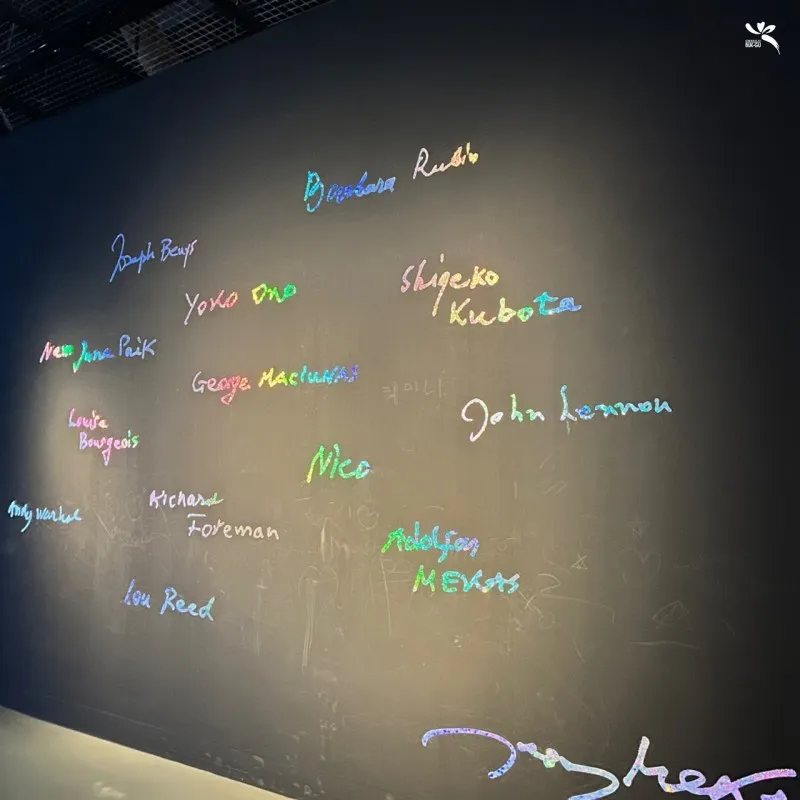 Barbara Rubin
Joseph Beuys
Yoko Ono
Shigeko
Kubota
Nam June Paik
George Maciunas
John Lennon
Louise
Bourgeois
Nico
Andy Warhol
Richard
Foreman
Adolfas
MEKAS
Lou Reed
BUK-GU